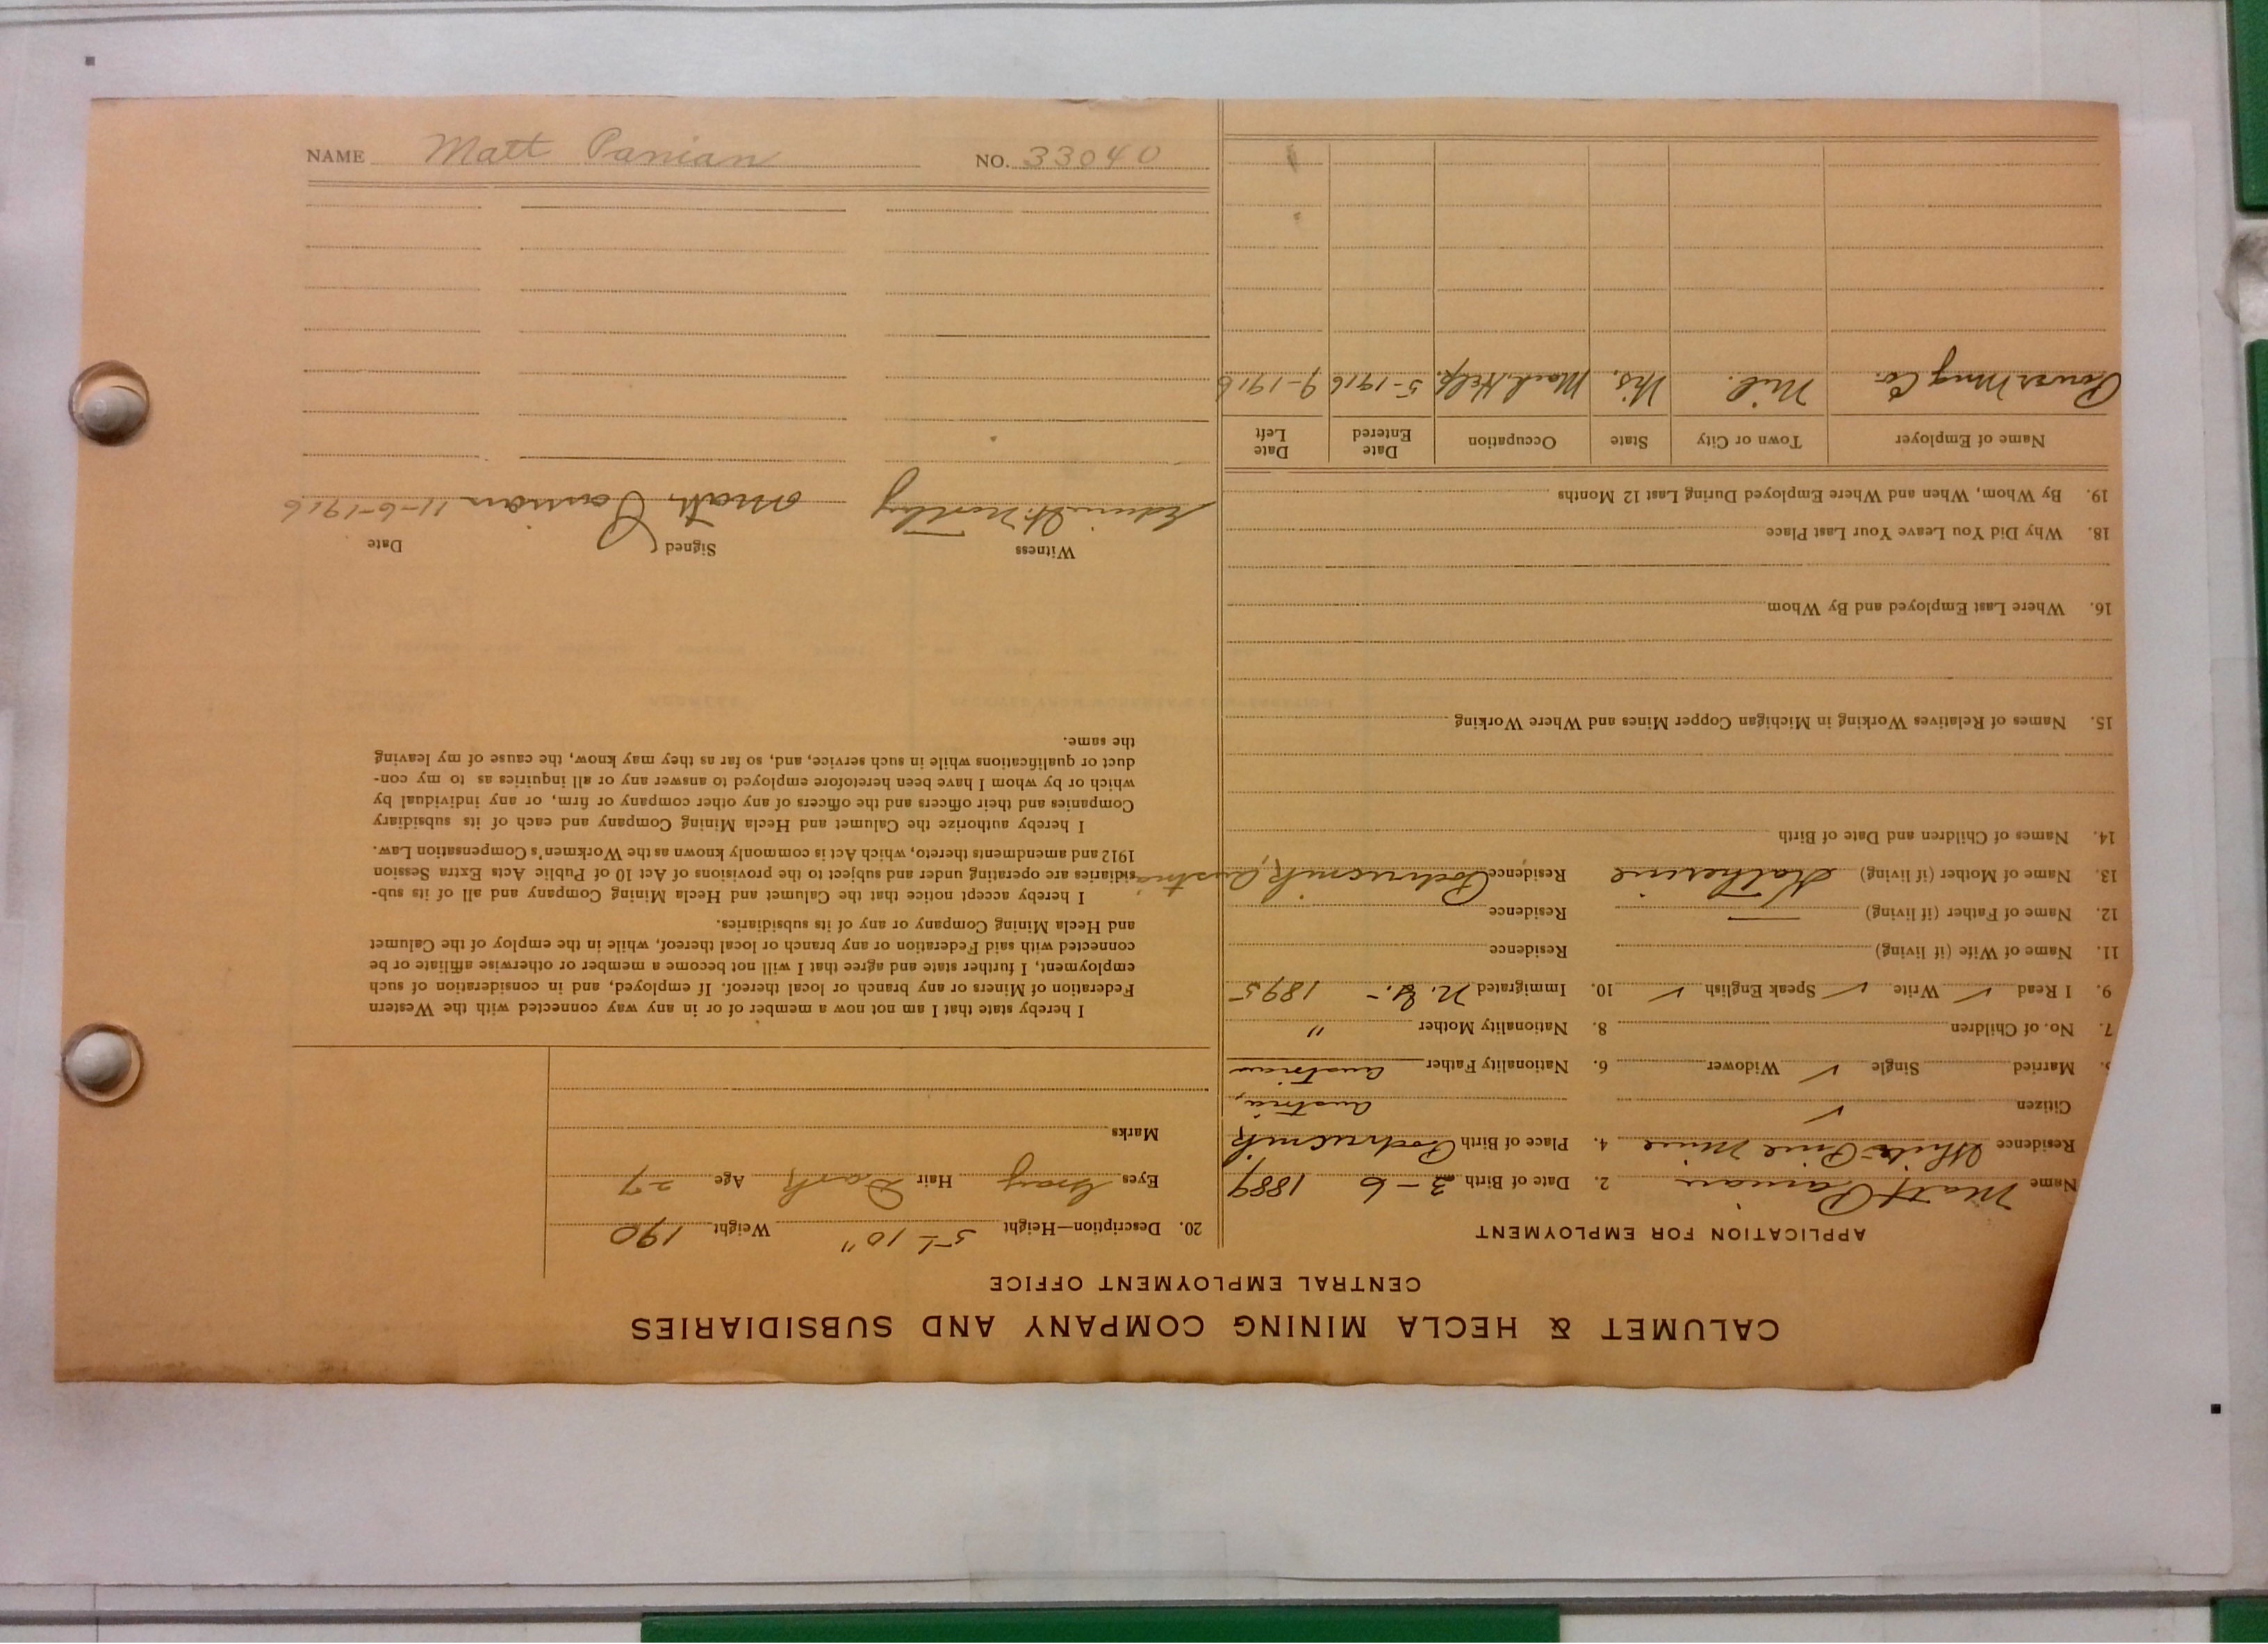 CALUMET & HECLA MINING COMPANY AND SUBSIDIARIES
CENTRAL EMPLOYMENT OFFICE
APPLICATION FOR EMPLOYMENT
Name Matt Panian 2. Date of Birth 3-6 1889
Residence White Pine Mine 4. Place of Birth
Citizen ✓ Austria,
5. Married Single ✓ Widower 6. Nationality Father Austrian
7. No. of Children 8. Nationality Mother "
9. I Read ✓ Write ✓ Speak English ✓ 10. Immigrated N.Y.- 1895
11. Name of Wife (if living) Residence
12. Name of Father (if living) — Residence
13. Name of Mother (if living) Katherine Residence Austria
14. Names of Children and Date of Birth
15. Names of Relatives Working in Michigan Copper Mines and Where Working
16. Where Last Employed and By Whom
18. Why Did You Leave Your Last Place
19. By Whom, When and Where Employed During Last 12 Months
Name of Employer Town or City State Occupation Date Entered Date Left
Power Mng Co. Mil. Wis. Mach. Help. 5-1916 9-1916
20. Description—Height 5' 10" Weight 190
Eyes Gray Hair Dark Age 27
Marks
I hereby state that I am not now a member of or in any way connected with the Western
Federation of Miners or any branch or local thereof. If employed, and in consideration of such
employment, I further state and agree that I will not become a member or otherwise affiliate or be
connected with said Federation or any branch or local thereof, while in the employ of the Calumet
and Hecla Mining Company or any of its subsidiaries.
I hereby accept notice that the Calumet and Hecla Mining Company and all of its sub-
sidiaries are operating under and subject to the provisions of Act 10 of Public Acts Extra Session
1912 and amendments thereto, which Act is commonly known as the Workmen's Compensation Law.
I hereby authorize the Calumet and Hecla Mining Company and each of its subsidiary
Companies and their officers and the officers of any other company or firm, or any individual by
which or by whom I have been heretofore employed to answer any or all inquiries as to my con-
duct or qualifications while in such service, and, so far as they may know, the cause of my leaving
the same.
Witness Signed Date
Matt Panian 11-6-1916
NAME Matt Panian NO. 33040